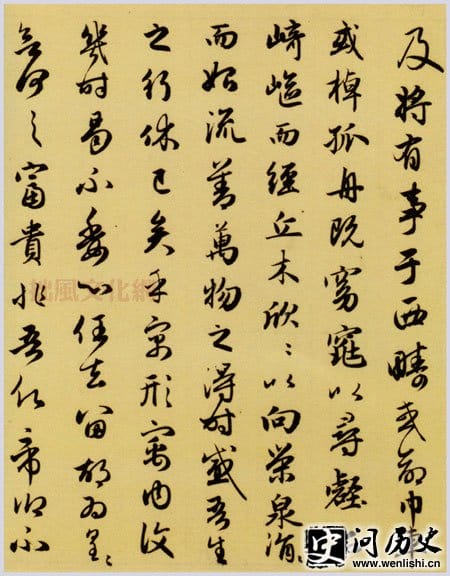 及將有事于西疇或命巾車
或棹孤舟既窈窕以尋壑
崎嶇而經丘木欣〻以向榮泉涓
而始流善萬物之得時感吾生
之行休已矣乎寓形寓内復
幾時曷不委心任去留胡為遑〻
何之富貴非吾願帝鄉不
拙風文化網
史问历史
www.wenlishi.cn